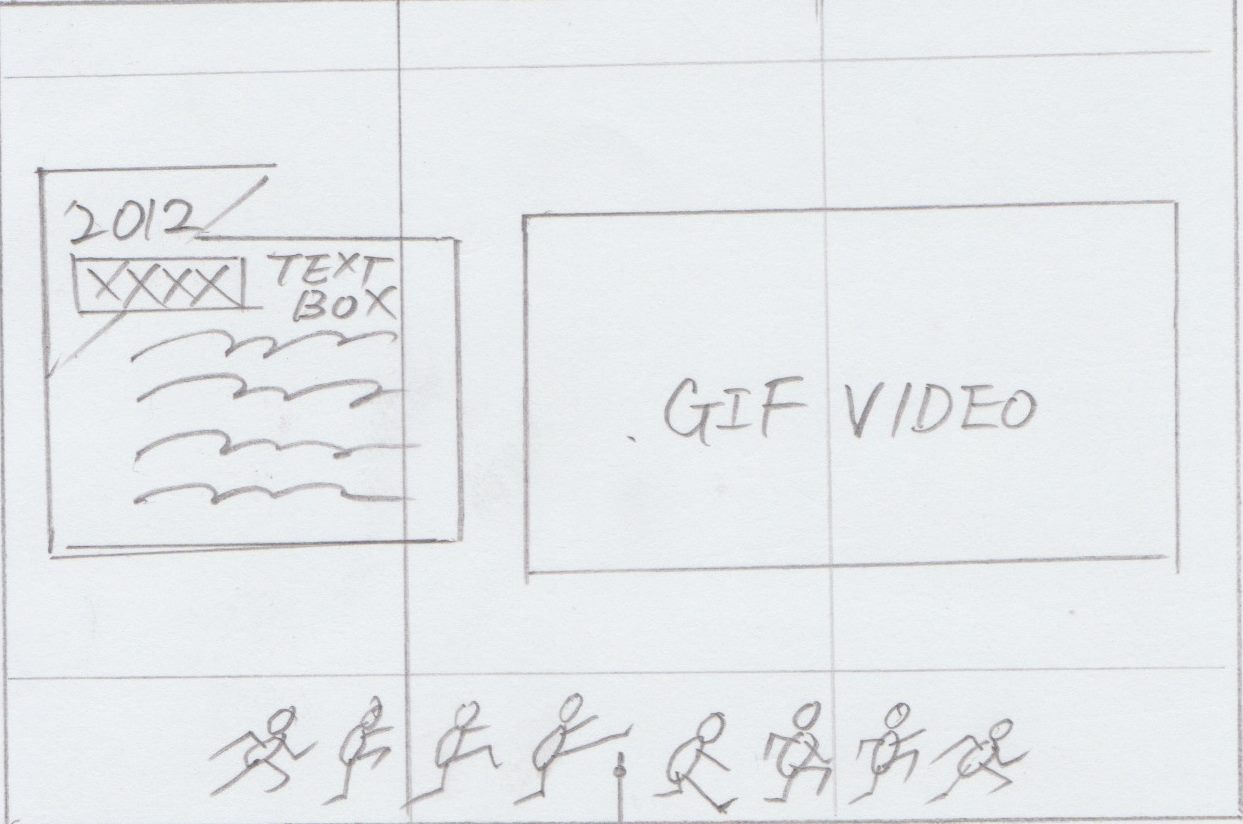 2012
XXXX
TEXT
BOX
GIF VIDEO